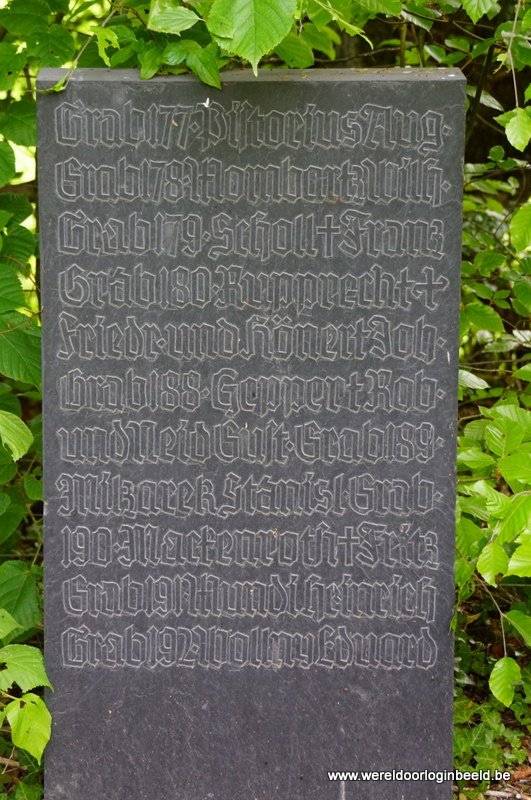 Grab 177 · Pistorius Aug ·
Grab 178 · Mombertz Wilh ·
Grab 179 · Scholl + Franz
Grab 180 · Rupprecht · +
Friedr · und Hönert Joh ·
Grab 188 · Geppert Rob ·
und Neid Gust · Grab 189 ·
Mikarek Stanisl · Grab ·
190 · Mackenroth + Fritz
Grab 191 Heinrich
Grab 192 Vollmy Eduard
www.wereldoorloginbeeld.be